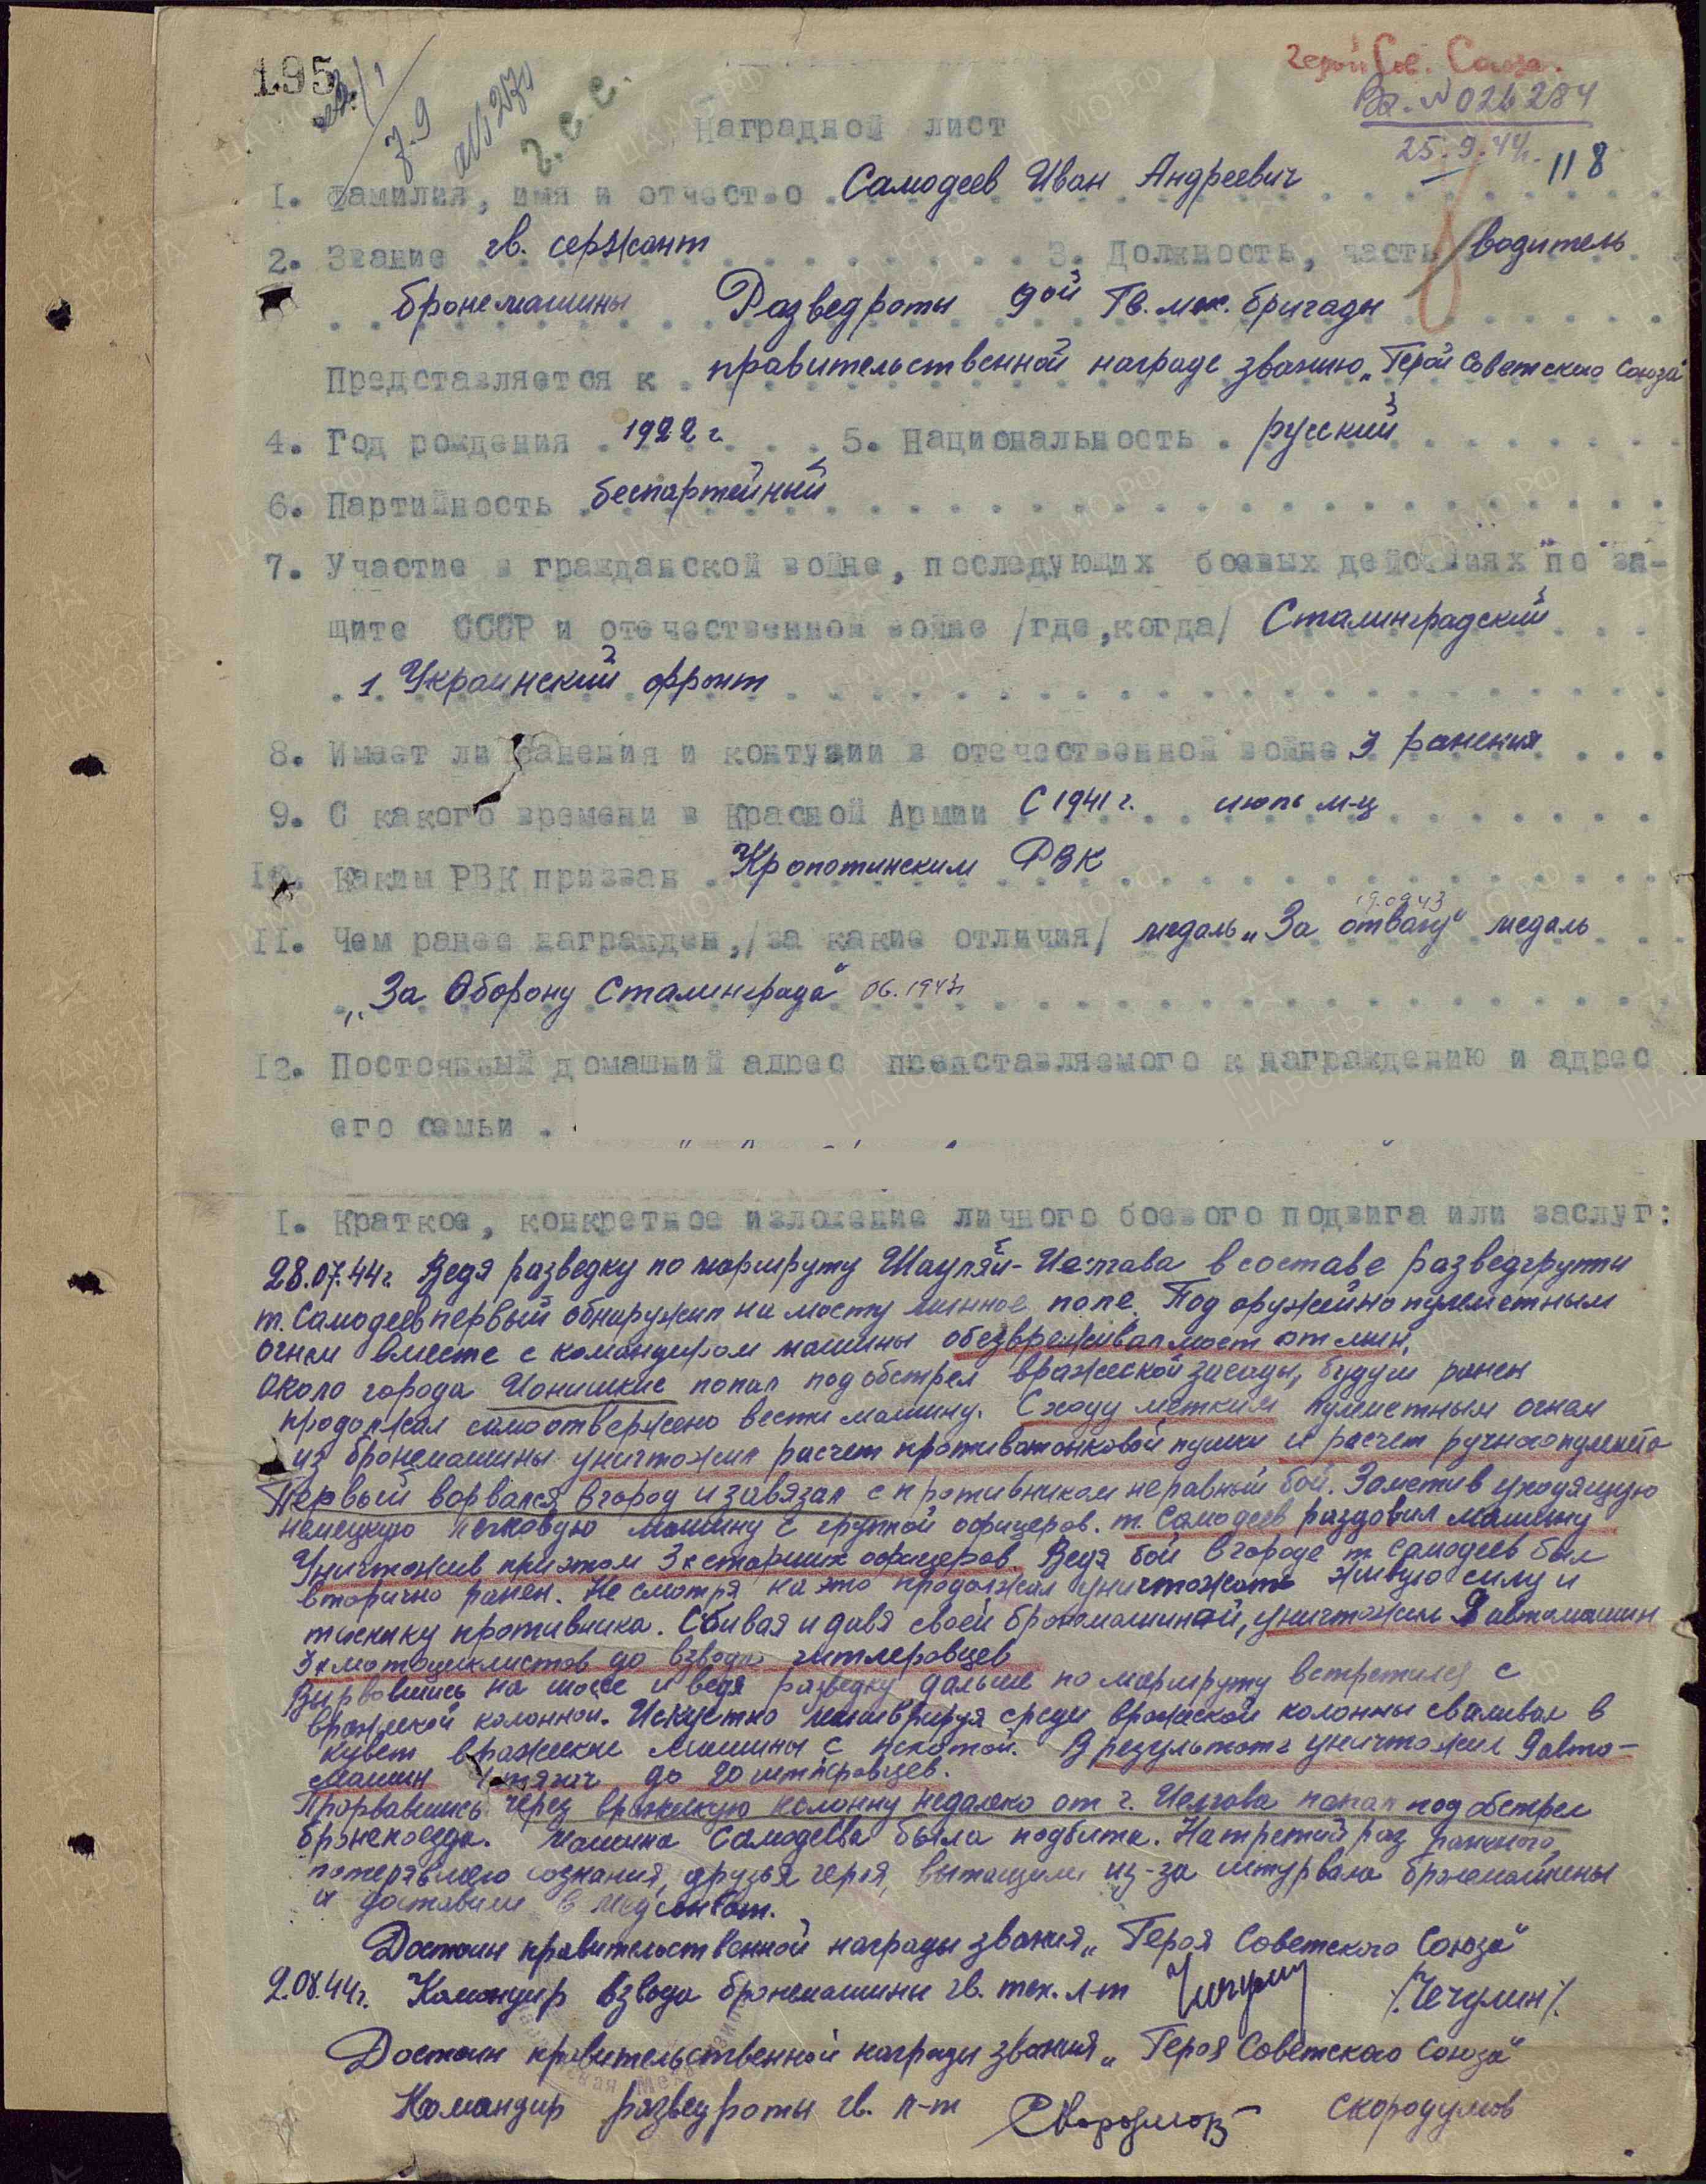 195
Герой Сов. Союза.
Вх. № 026284
25.9.44г.
118
7.9
Г.С.С.
Наградной лист
1. Фамилия, имя и отчество Самодеев Иван Андреевич
2. Звание гв. сержант 3. Должность, часть водитель
бронемашины Разведроты 9ой Гв. мех. бригады
Представляется к правительственной награде званию „Герой Советского Союза"
4. Год рождения 1922 г. 5. Национальность русский
6. Партийность беспартейный
7. Участие в гражданской войне, последующих боевых действиях по за-
щите СССР и отечественной войне /где, когда/ Сталинградский
1 Украинский фронт
8. Имеет ли ранения и контузии в отечественной войне 3 ранения
9. С какого времени в Красной Армии С 1941 г. июль м-ц
10. Каким РВК призван Кропоткинским РВК
11. Чем ранее награжден, /за какие отличия/ медаль „За отвагу" медаль
19.09.43
„За Оборону Сталинграда" 06.1943г
12. Постоянный домашний адрес представляемого к награждению и адрес
его семьи .
1. Краткое, конкретное изложение личного боевого подвига или заслуг:
28.07.44г. Ведя разведку по маршруту Шауляй-Иелгава в составе разведгруппы
т. Самодеев первый обнаружил на мосту минное поле. Под оружейно пулеметным
огнем вместе с командиром машины обезвреживал мост от мин.
Около города Ионишкис попал под обстрел вражеской засады, будучи ранен
продолжал самоотвержено вести машину. С ходу метким пулеметным огнем
из бронемашины уничтожил расчет противотанковой пушки и расчет ручного пулемета
Первый ворвался в город и завязал с противником неравный бой. Заметив уходящую
немецкую легковую машину с группой офицеров. т. Самодеев раздавил машину
Уничтожив при этом 3х старших офицеров. Ведя бой в городе т. Самодеев был
вторично ранен. Не смотря на это продолжал уничтожать живую силу и
технику противника. Сбивая и давя своей бронемашиной, уничтожил 9 автомашин
3х мотоциклистов до взвода гитлеровцев
Вырвавшись на шосе и ведя разведку дальше по маршруту встретился с
вражеской колонной. Искустно маневрируя среди вражеской колонны сваливал в
кувет вражеские машины с пехотой. В результате уничтожил 9 авто-
машин 1 тягач до 20 гитлеровцев.
Прорвавшись через вражескую колонну недалеко от г. Иелгава попал под обстрел
бронепоезда. Машина Самодеева была подбита. На третий раз раненого,
потерявшего сознания, друзья героя, вытащили из-за штурвала бронемашины
и доставили в медсанбат.
Достоин правительственной награды звания „Героя Советского Союза"
9.08.44г. Командир взвода бронемашин гв. тех. л-т /Чечулин/.
Достоин правительственной награды звания „Героя Советского Союза"
Командир разведроты гв. л-т Скородумов